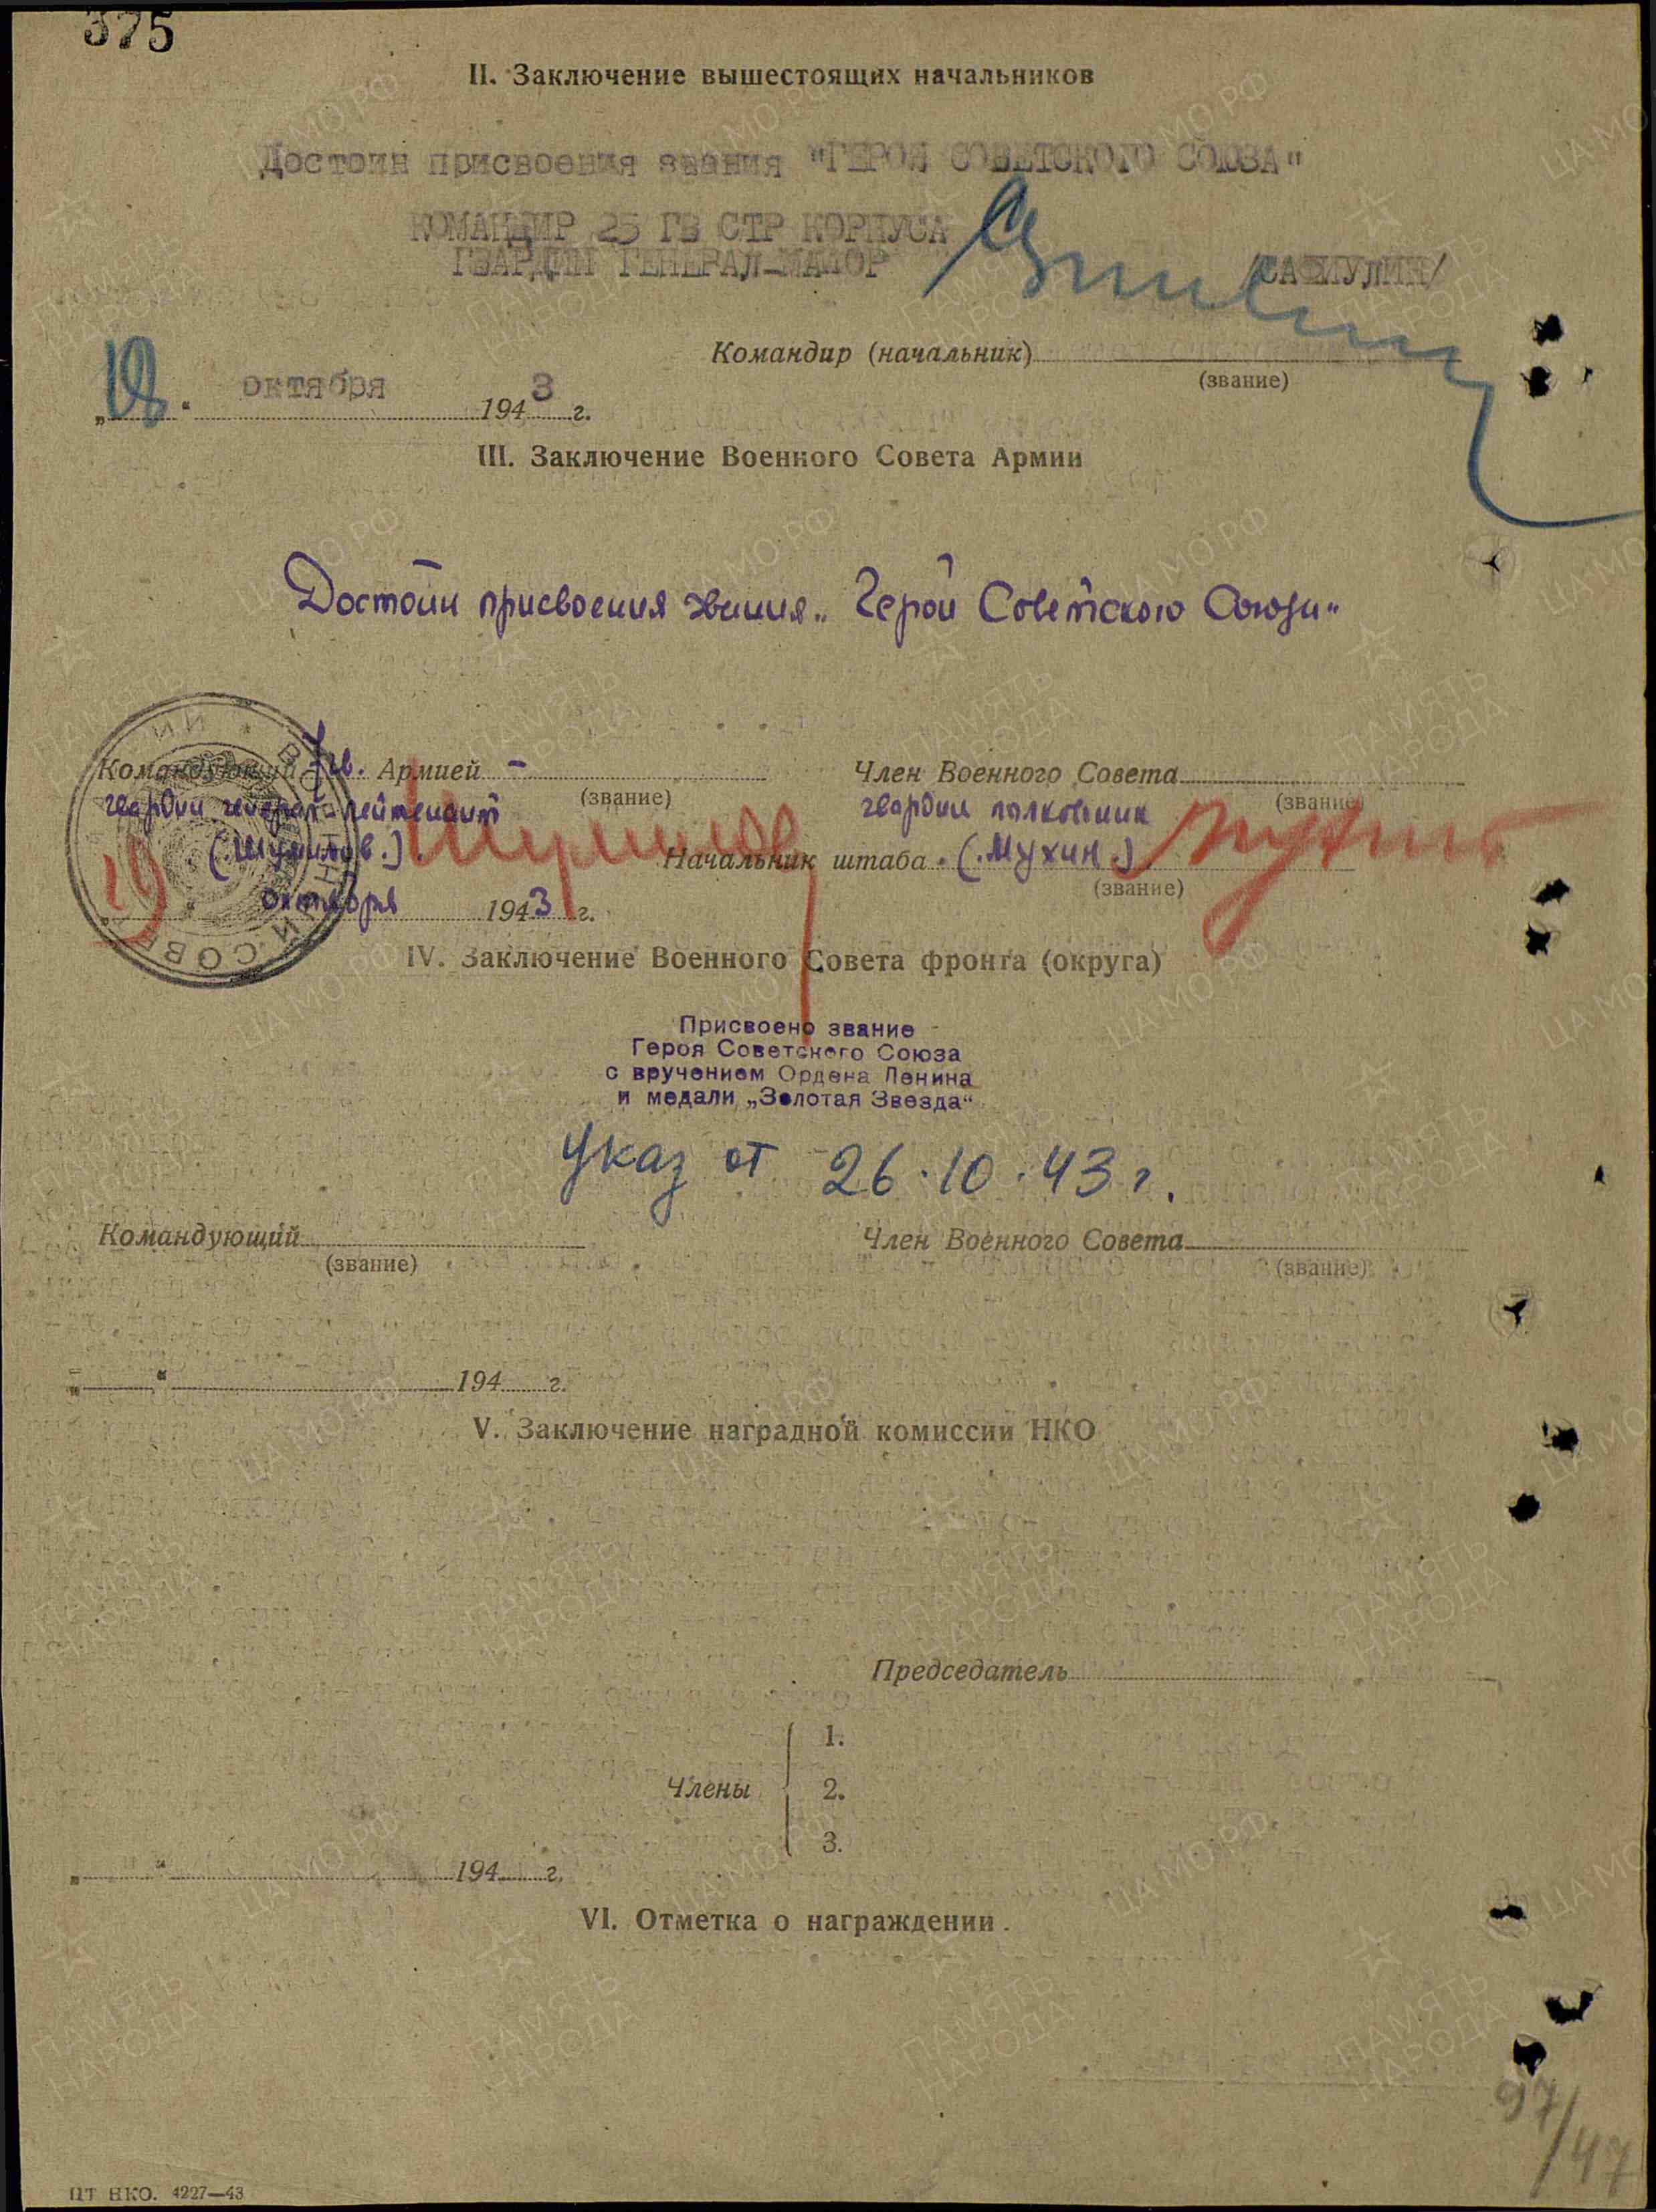 375
II. Заключение вышестоящих начальников
Достоин присвоения звания "ГЕРОЯ СОВЕТСКОГО СОЮЗА"
КОМАНДИР 25 ГВ СТР КОРПУСА
ГВАРДИИ ГЕНЕРАЛ-МАЙОР /САФИУЛИН/
Командир (начальник)
(звание)
октября 1943 г.
III. Заключение Военного Совета Армии
Достоин присвоения звания „Герой Советского Союза“
Командующий 7 гв. Армией - Член Военного Совета
(звание) (звание)
гвардии генерал-лейтенант гвардии полковник
(Шумилов.) Шумилов Начальник штаба (.Мухин.) Мухин
(звание)
19 октября 1943 г.
IV. Заключение Военного Совета фронта (округа)
Присвоено звание
Героя Советского Союза
с вручением Ордена Ленина
и медали „Золотая Звезда“
Указ от 26.10.43 г.
Командующий Член Военного Совета
(звание) (звание)
„ “ 194 г.
V. Заключение наградной комиссии НКО
Председатель
1.
Члены 2.
3.
„ “ 194 г.
VI. Отметка о награждении.
97/47
ЦТ НКО. 4227—43
ЦА МО РФ
ПАМЯТЬ
НАРОДА